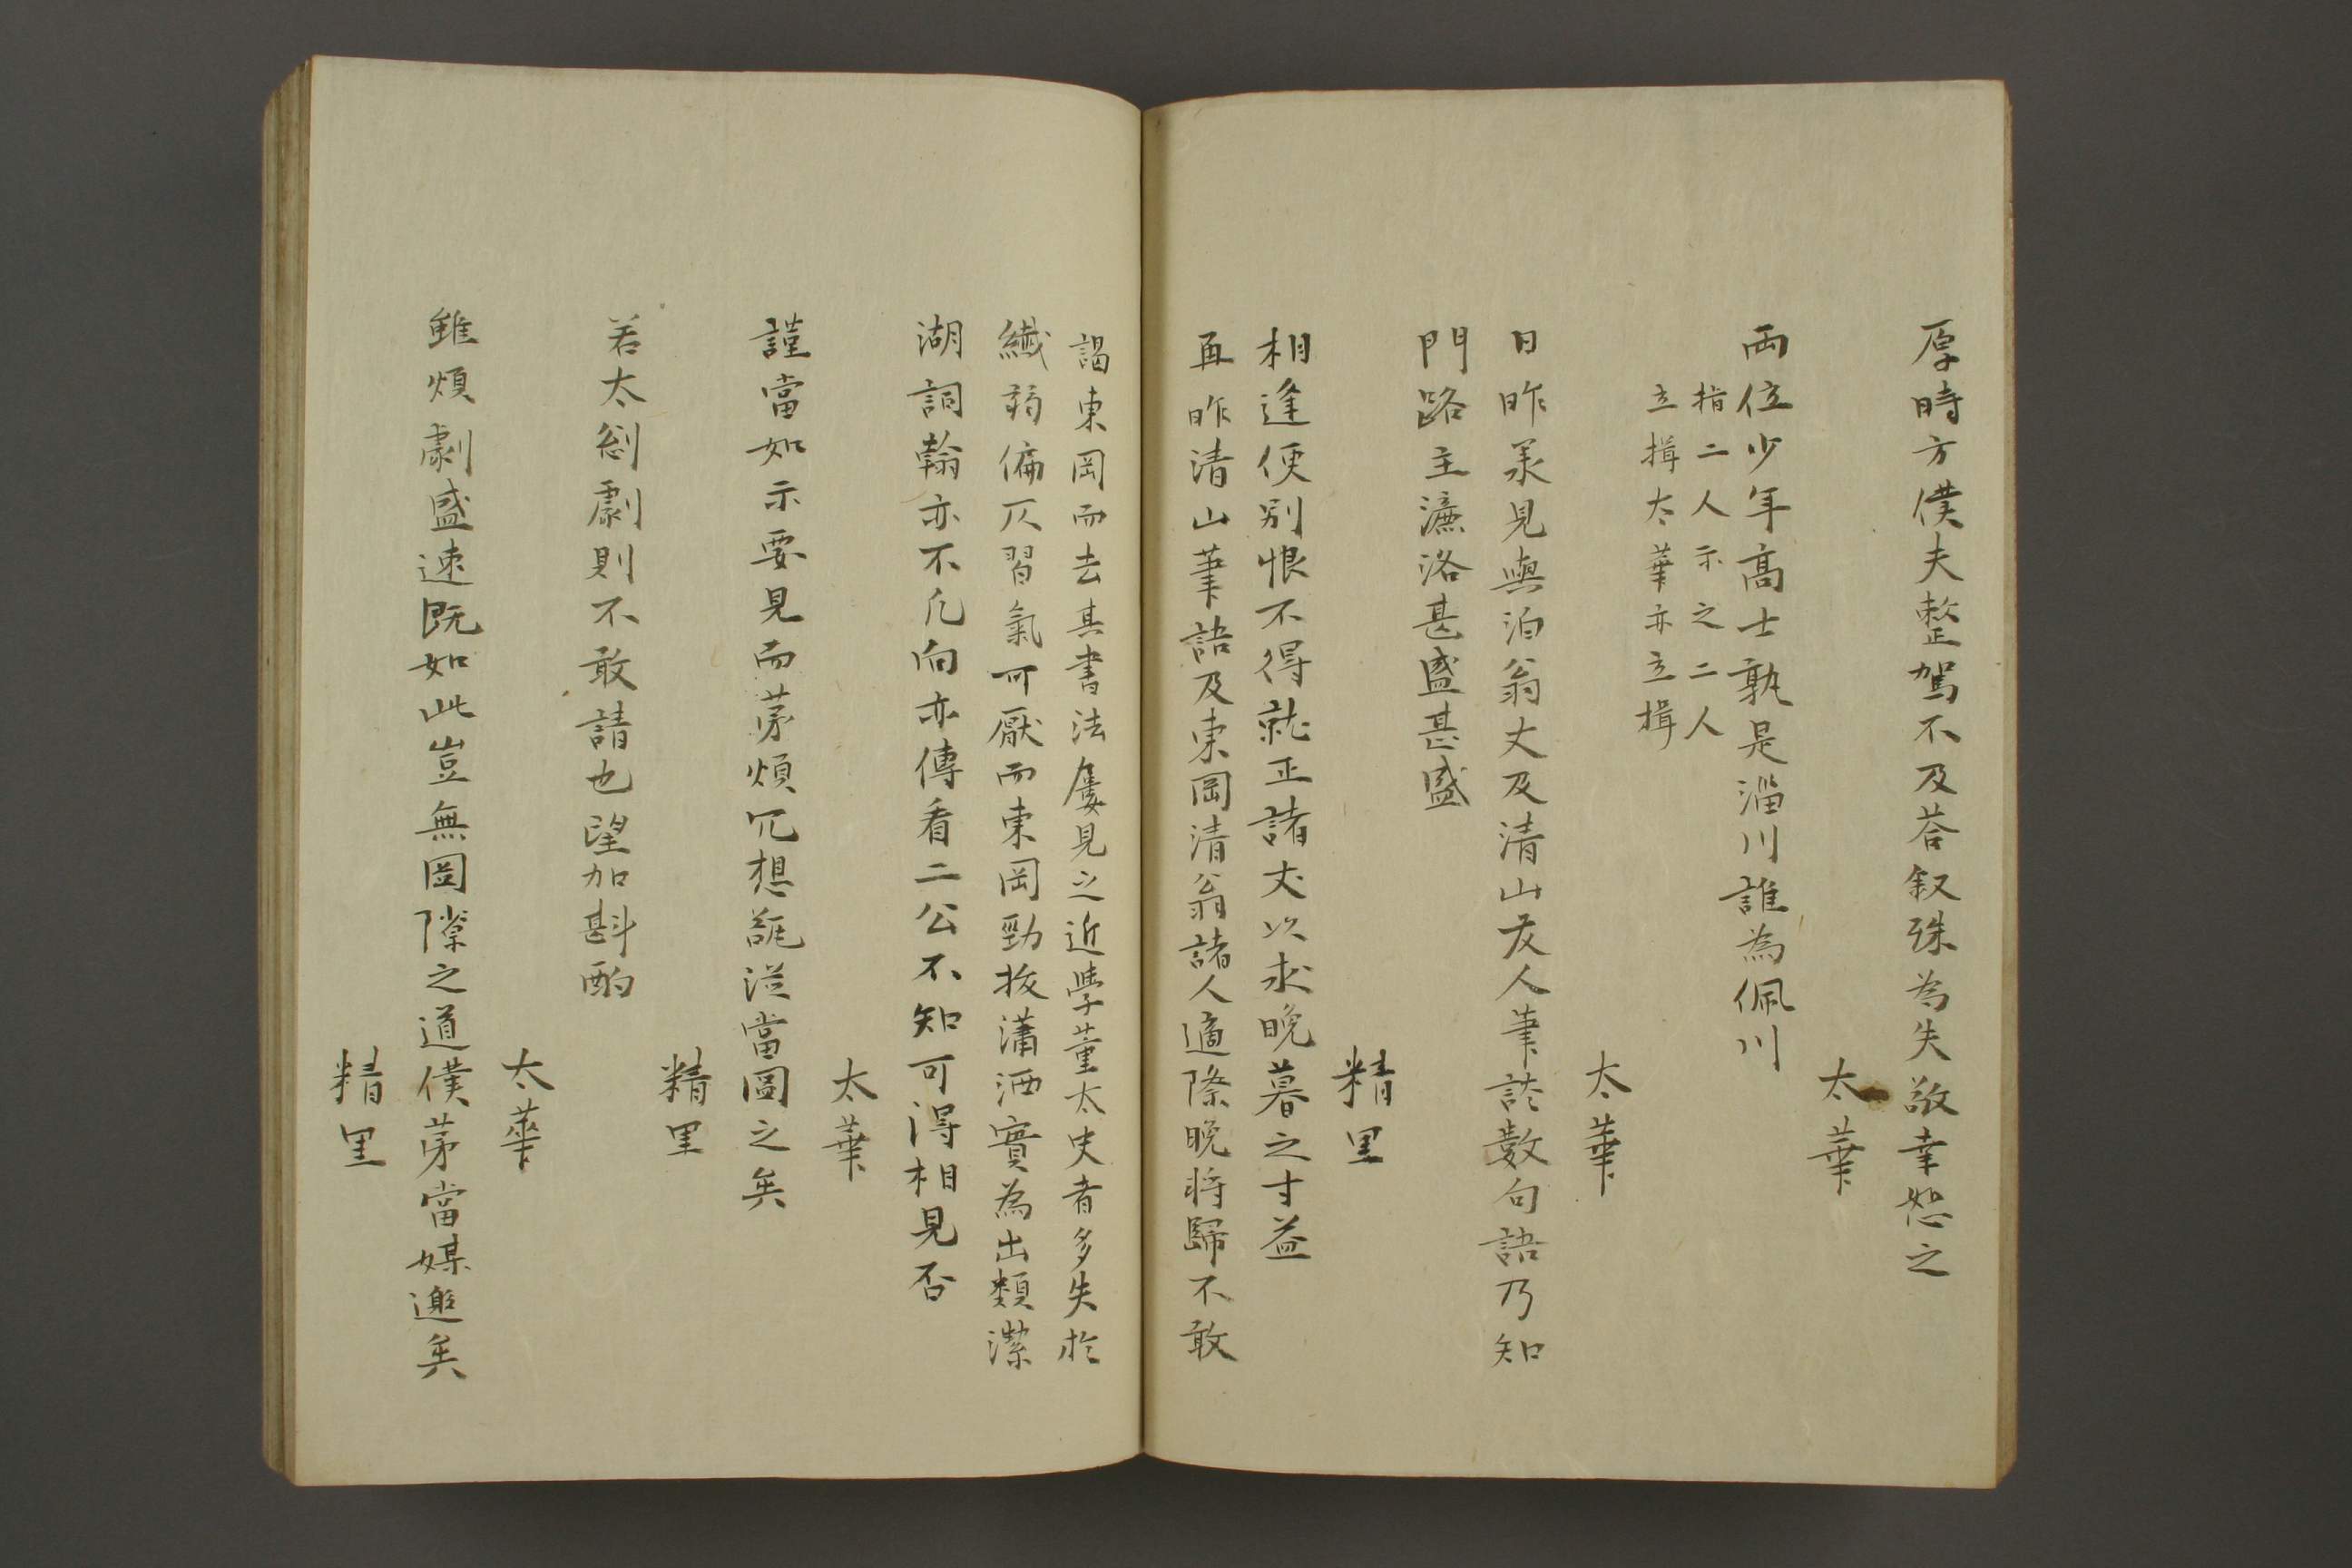 厚時方僕夫整駕不及荅叙殊為失敬幸恕之
太華
両位少年高士孰是淄川誰為佩川
指二人示之二人
立揖太華亦立揖
太華
日昨承見與泊翁丈及清山友人筆談數句語乃知
門路主濂洛甚盛甚盛
精里
相逢便別恨不得就正諸丈以求晩暮之寸益
再昨清山筆語及東岡清翁諸人適際晩將歸不敢
謁東岡而去其書法屢見之近學董太史者多失於
纎弱偏仄習氣可厭而東岡勁拔蕭洒實為出類潔
湖詞翰亦不凡向亦傳看二公不知可得相見否
太華
謹當如示要見而苐煩冗想難従當圖之矣
精里
若太忩劇則不敢請也望加斟酌
太華
雖煩劇盛速既如此豈無罔隙之道僕苐當媒邀矣
精里